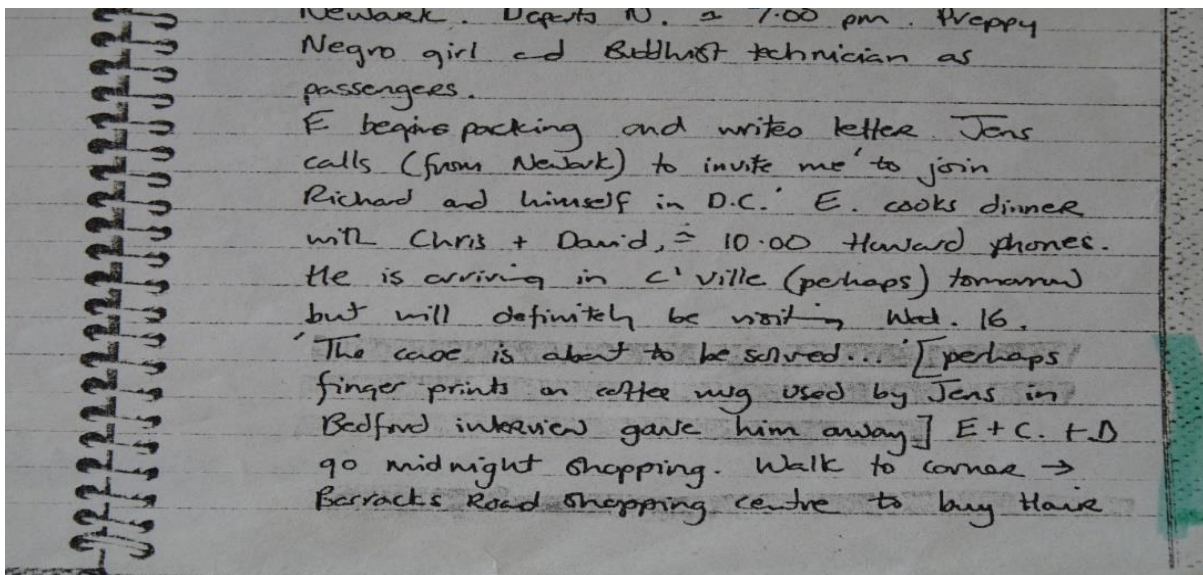 Newark. Departs N. @ 7.00 pm. Preppy
Negro girl and Buddhist technician as
passengers.
E begins packing and writes letter. Jens
calls (from Newark) to invite me 'to join
Richard and himself in D.C.' E. cooks dinner
with Chris + David, ≃ 10.00 Howard phones.
He is arriving in C'ville (perhaps) tomorrow
but will definitely be visiting Wed. 16.
'The case is about to be solved...' [perhaps
finger prints on coffee mug used by Jens in
Bedford interview gave him away] E + C. + D
go midnight shopping. Walk to corner →
Barracks Road shopping centre to buy Hair